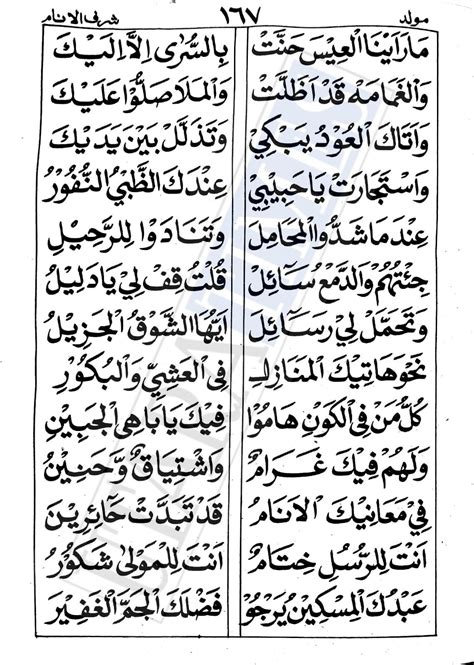 مولد ١٦٧ شرف الانام
مَارَاَيْنَا الْعِيْسَ حَنَّتْ بِالسُّرٰى اِلَّا اِلَيْكَ
وَالْغَمَامَهْ قَدْ اَظَلَّتْ وَالْمَلَا صَلُّوْا عَلَيْكَ
وَاَتَاكَ الْعُوْدُ يَبْكِيْ وَتَذَلَّلْ بَيْنَ يَدَيْكَ
وَاسْتَجَارَتْ يَاحَبِيْبِيْ عِنْدَكَ الظَّبْيُ النُّفُوْرُ
عِنْدَ مَا شَدُّوا الْمَحَامِلَ وَتَنَادَوْا لِلرَّحِيْلِ
جِئْتُهُمْ وَالدَّمْعُ سَائِلْ قُلْتُ قِفْ لِيْ يَادَلِيْلُ
وَتَحَمَّلْ لِيْ رَسَائِلْ اَيُّهَا الشَّوْقُ الْجَزِيْلُ
نَحْوَ هَاتِيْكَ الْمَنَازِلْ فِى الْعَشِيِّ وَالْبُكُوْرِ
كُلُّ مَنْ فِى الْكَوْنِ هَامُوْا فِيْكَ يَابَاهِى الْجَبِيْنِ
وَلَهُمْ فِيْكَ غَرَامٌ وَاشْتِيَاقٌ وَّحَنِيْنُ
فِيْ مَعَانِيْكَ الْاَنَامُ قَدْ تَبَدَّتْ حَائِرِيْنَ
اَنْتَ لِلرُّسْلِ خِتَامٌ اَنْتَ لِلْمَوْلٰى شَكُوْرُ
عَبْدُكَ الْمِسْكِيْنُ يَرْجُوْ فَضْلَكَ الْجَمَّ الْغَفِيْرَ